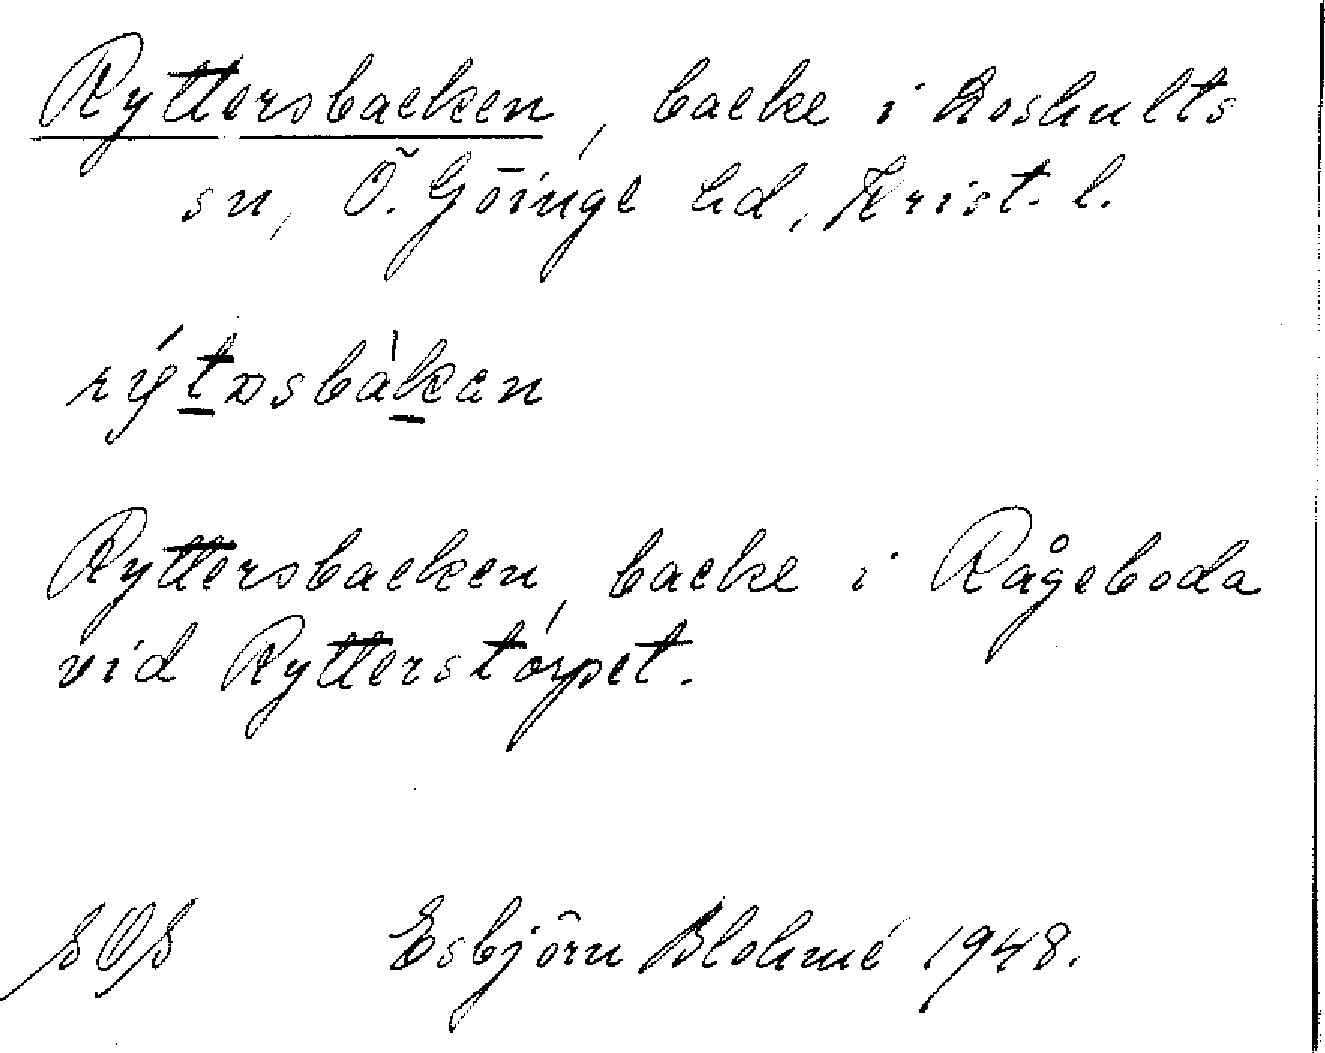 Ryttersbacken, backe i Loshults
sn, Ö. Göinge hd, Krist. l.
rýt̲ɒsbàk̲en
Ryttersbacken, backe i Rågeboda
vid Rytterstorpet.
SOS Esbjörn Blohmé 1948.